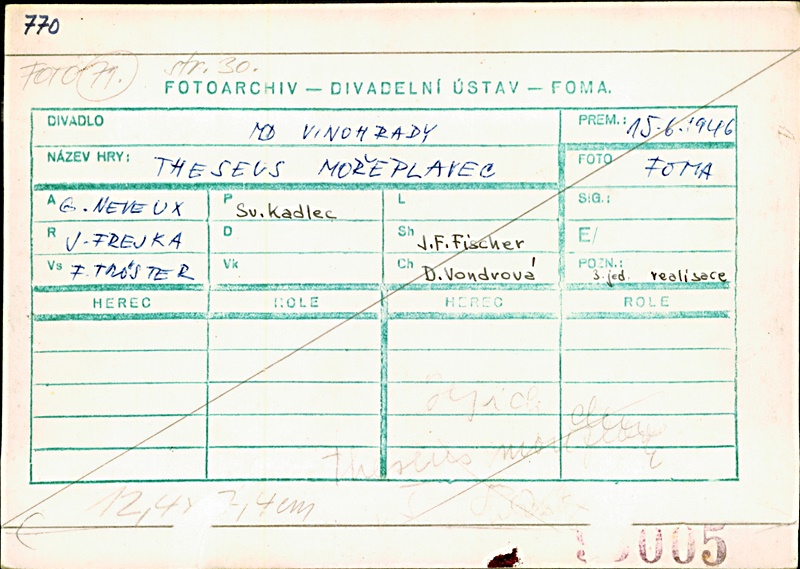 770
FOTO 71. str. 30.
FOTOARCHIV — DIVADELNÍ ÚSTAV — FOMA.
DIVADLO MD VINOHRADY PREM.: 15.6.1946
NÁZEV HRY: THESEUS MOŘEPLAVEC FOTO FOMA
A G. NEVEUX P Sv. Kadlec L SIG.:
R J. FREJKA D Sh J.F. Fischer E/
Vs F. TRÖSTER Vk Ch D. Vondrová POZN.: 3. jed. realisace
HEREC ROLE HEREC ROLE
Theseus
12,4 x 7,4 cm
005